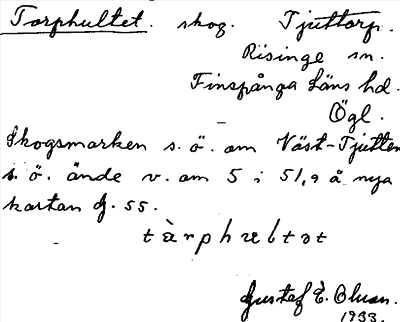 Torphultet. skog. Tjuttorp.
Risinge sn.
Finspånga Läns hd.
Ögl.
Skogsmarken s. ö. om Väst-Tjutten
s. ö. ände v. om 5 i 51,9 å nya
kartan bl. 55.
tàrphæltət
Gustaf E. Olsson.
1933.